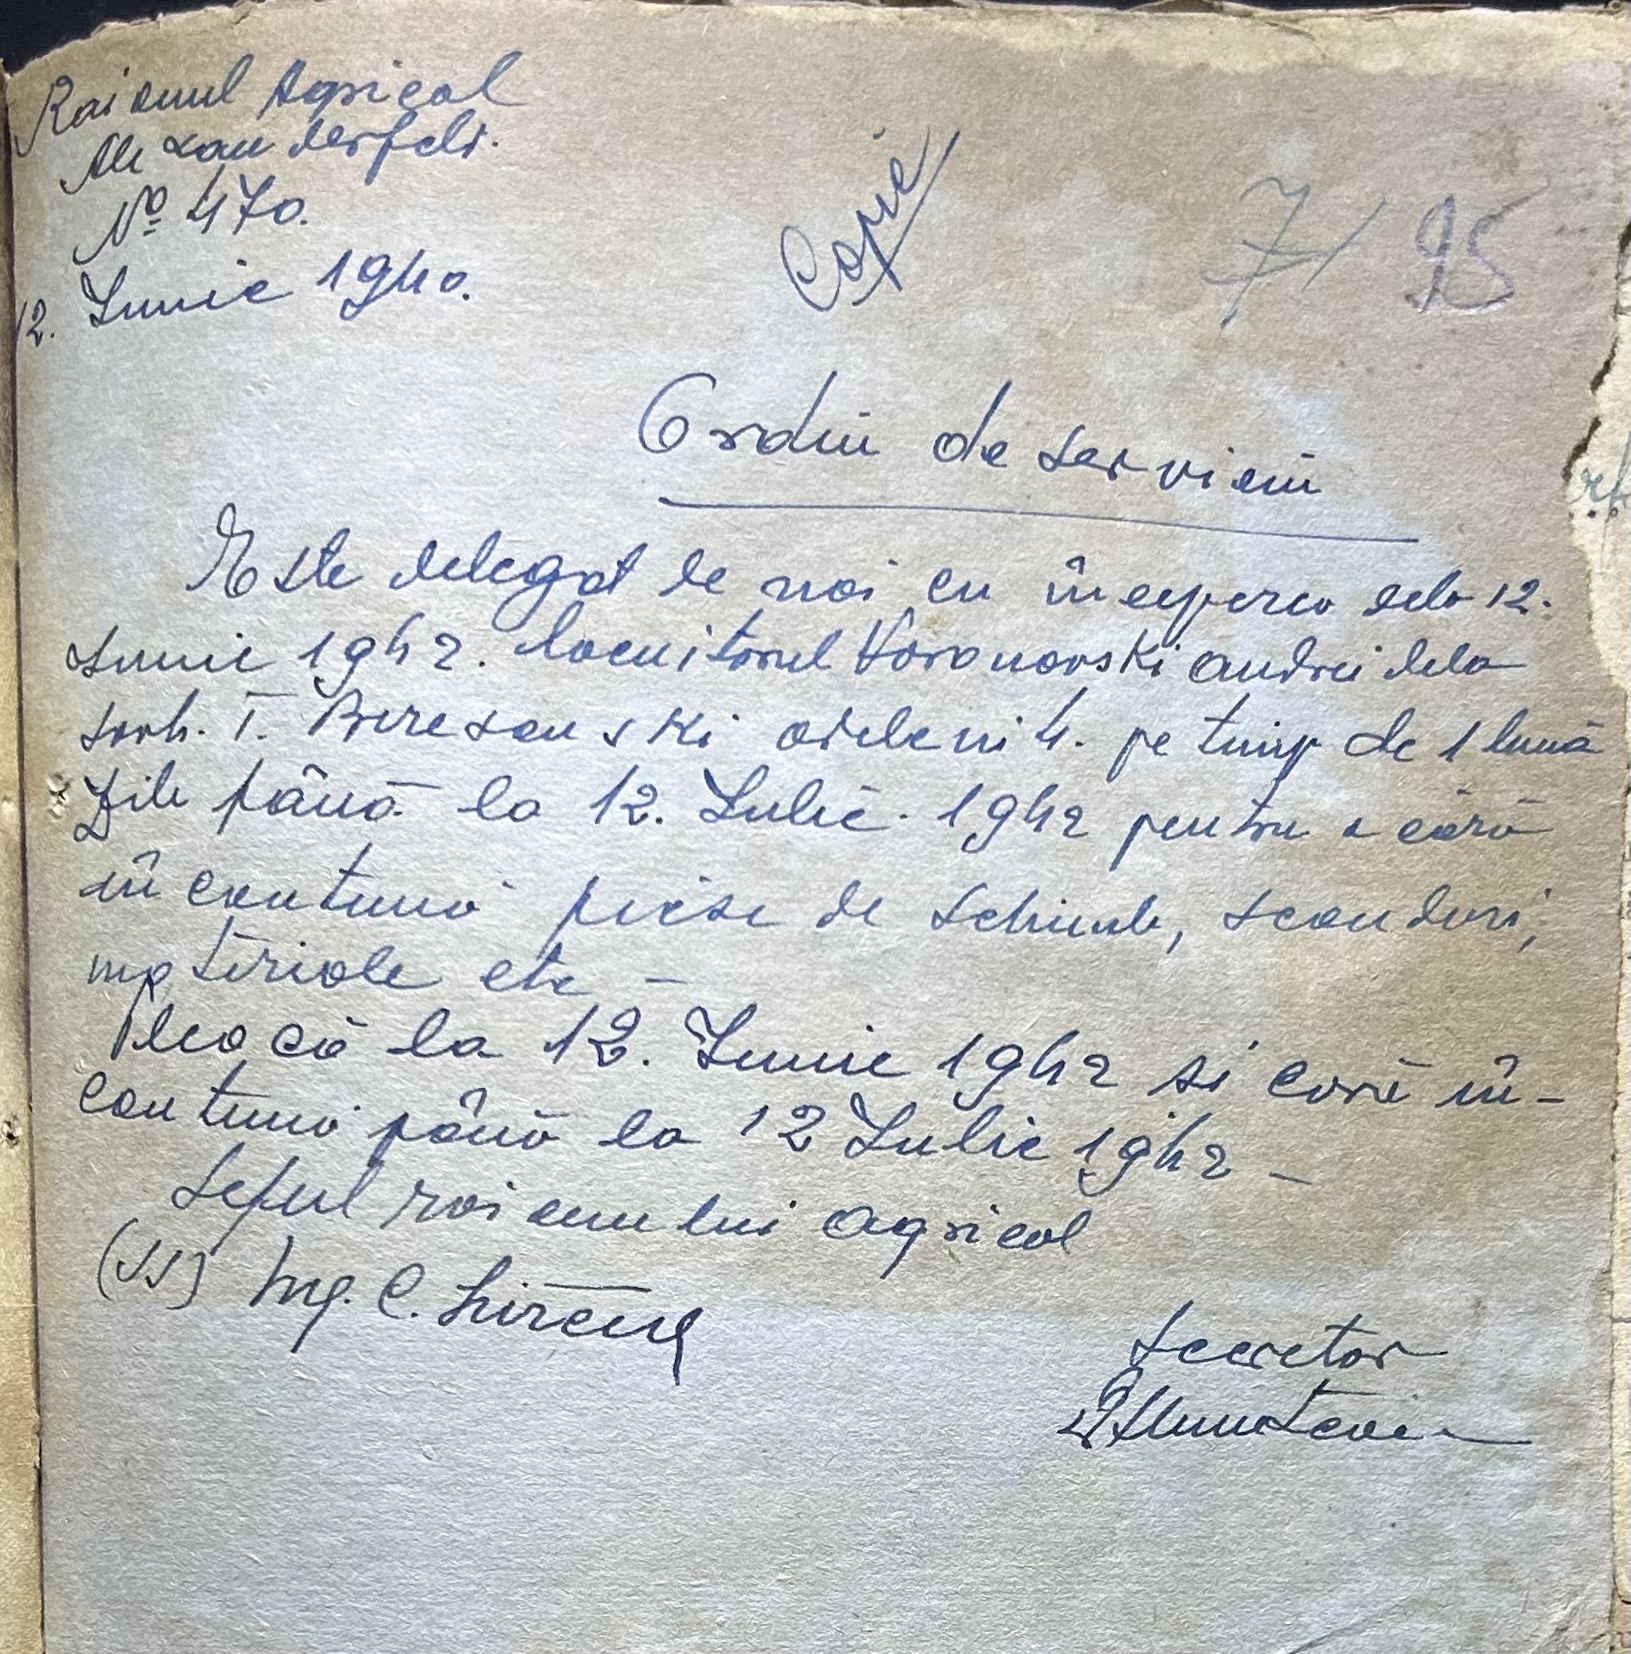 Raionul Agricol
Alexanderfeld.
No 470.
12. Iunie 1940.
Copie
7/ 95
Ordin de serviciu
Este delegat de noi cu începerea dela 12.
Iunie 1942. locuitorul Voronovski Andrei dela
sovh. I. Beresanski pe timp de 1 lună
zile până la 12. Iulie. 1942 pentru a cără
în contunuă piese de schimb, scanduri,
materiale etc –
Pleacă la 12. Iunie 1942 si cară în-
contunuă până la 12 Iulie 1942 –
Seful raionului agricol
(ss) Ing. C.
Secretar